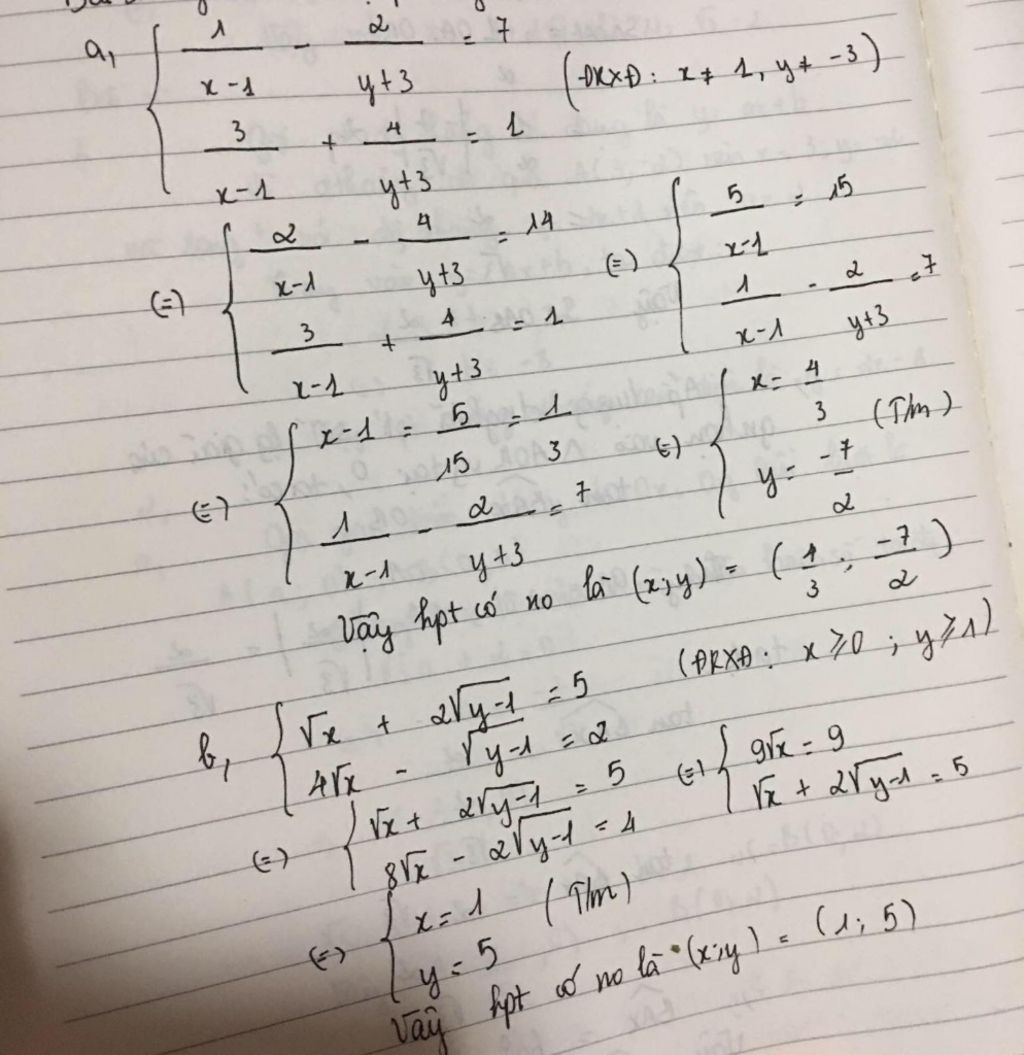 a, { 1/(x-1) - 2/(y+3) = 7
3/(x-1) + 4/(y+3) = 1 (ĐKXĐ: x ≠ 1, y ≠ -3)
(=) { 2/(x-1) - 4/(y+3) = 14
3/(x-1) + 4/(y+3) = 1
(=) { 5/(x-1) = 15
1/(x-1) - 2/(y+3) = 7
(=) { x-1 = 5/15 = 1/3
1/(x-1) - 2/(y+3) = 7
(=) { x = 4/3
y = -7/2 (T/m)
Vậy hpt có no là (x;y) = (4/3; -7/2)
b, { √x + 2√(y-1) = 5
4√x - √(y-1) = 2 (ĐKXĐ: x ⩾ 0 ; y ⩾ 1)
(=) { √x + 2√(y-1) = 5
8√x - 2√(y-1) = 4
(=) { 9√x = 9
√x + 2√(y-1) = 5
(=) { x = 1
y = 5 (T/m)
Vậy hpt có no là (x;y) = (1; 5)